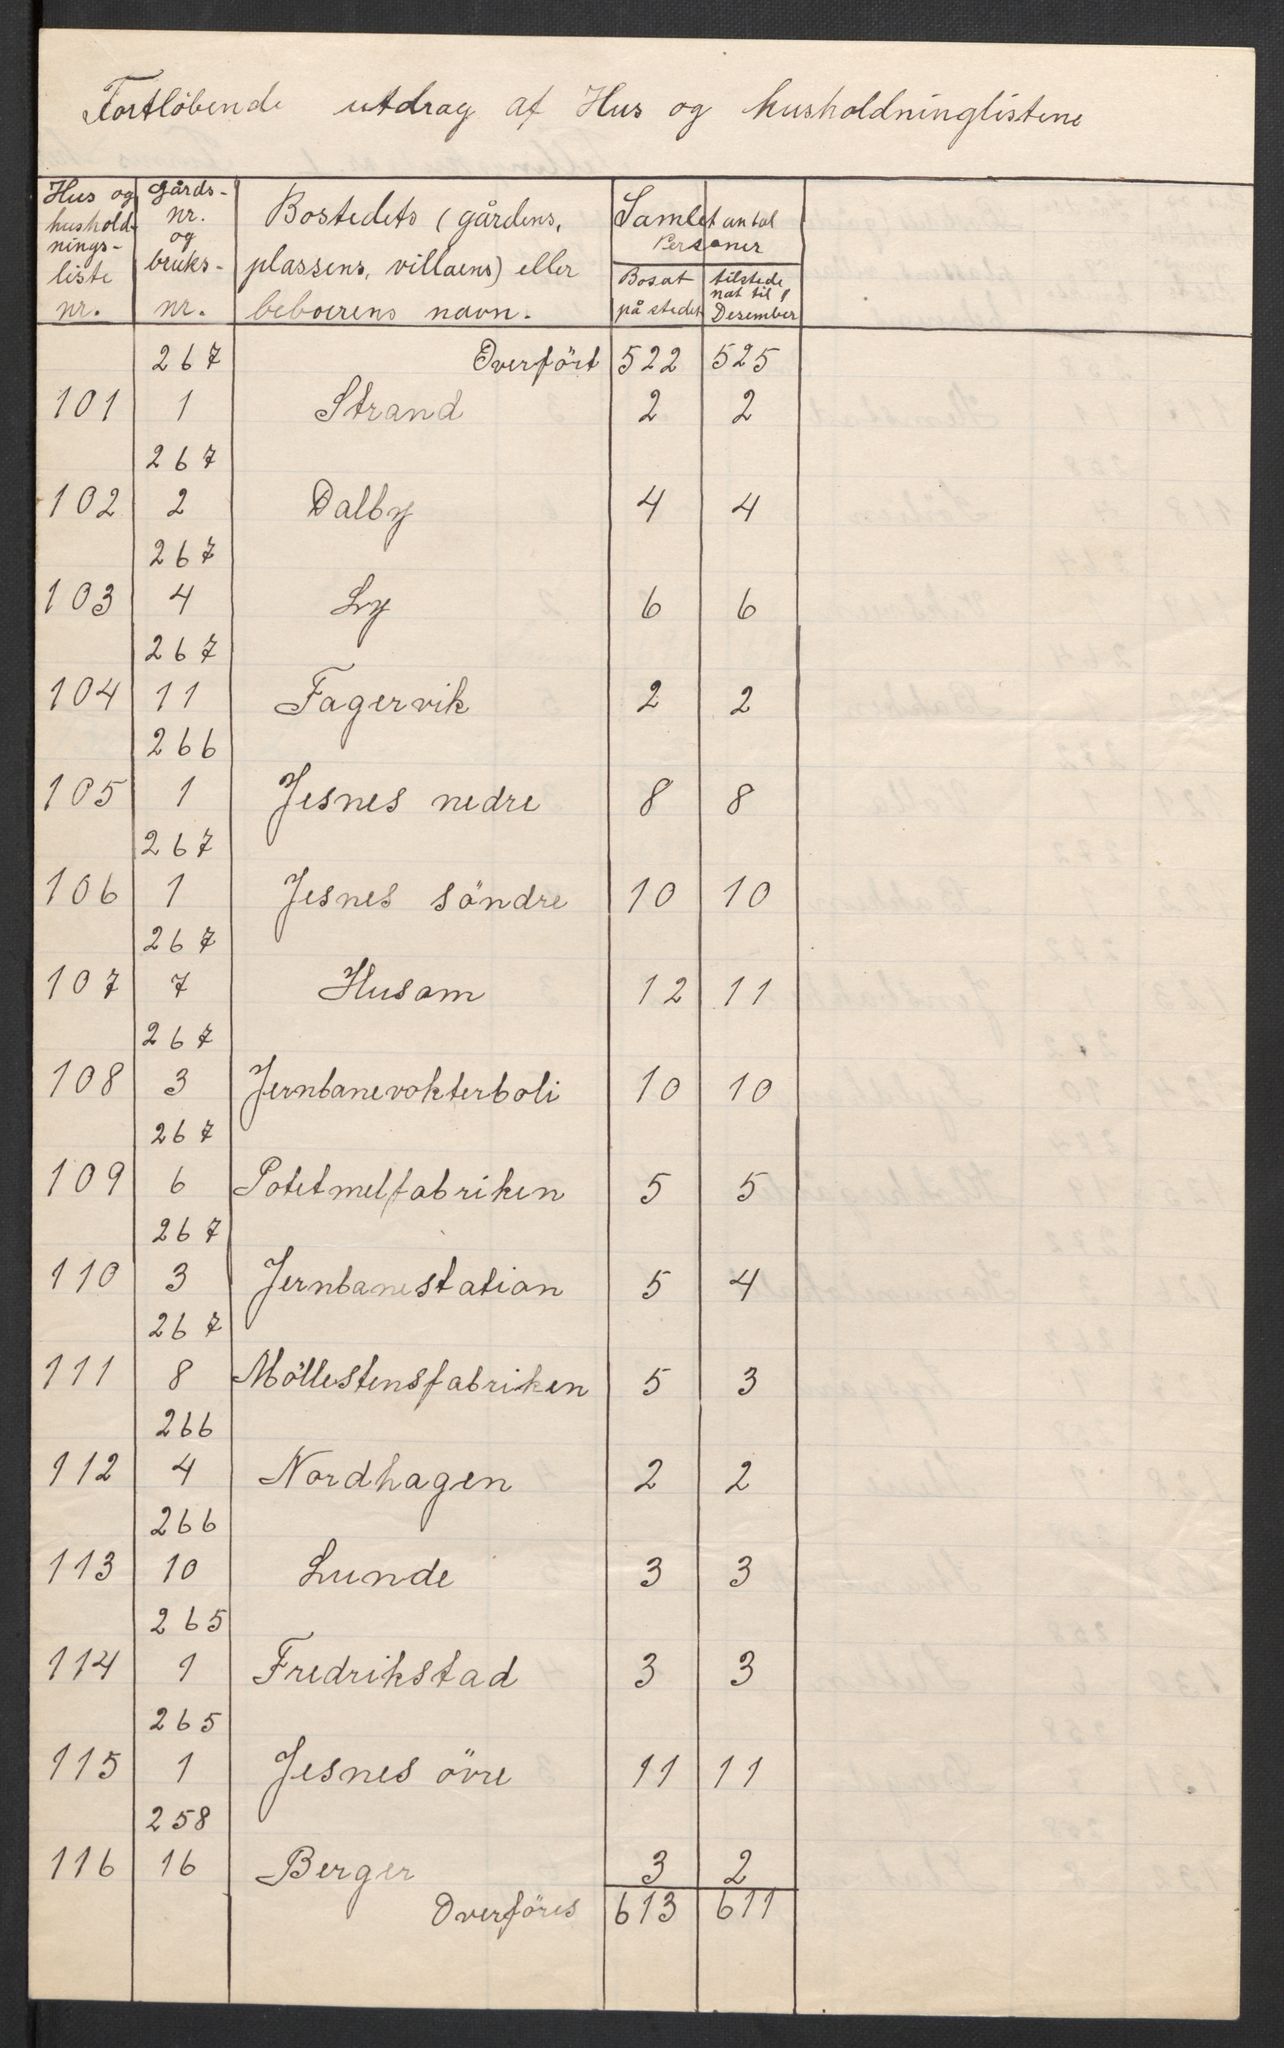 Fortløbende utdrag af Hus og husholdninglistene
Hus og hushold-nings-liste nr. | Gårds-nr. og bruks-nr. | Bostedets (gårdens, plassens, villaens) eller beboerens navn. | Samlet antal Personer
Bosat på stedet | tilstede nat til 1 Desember
267 Overført 522 525
101 1 Strand 2 2
267
102 2 Dalby 4 4
267
103 4 Ly 6 6
267
104 11 Fagervik 2 2
266
105 1 Jesnes nedre 8 8
267
106 1 Jesnes söndre 10 10
267
107 7 Husom 12 11
267
108 3 Jernbanevokterboli 10 10
267
109 6 Potetmelfabriken 5 5
267
110 3 Jernbanestation 5 4
267
111 8 Möllestensfabriken 5 3
266
112 4 Nordhagen 2 2
266
113 10 Lunde 3 3
265
114 1 Fredrikstad 3 3
265
115 1 Jesnes övre 11 11
258
116 16 Berger 3 2
Overföres 613 611